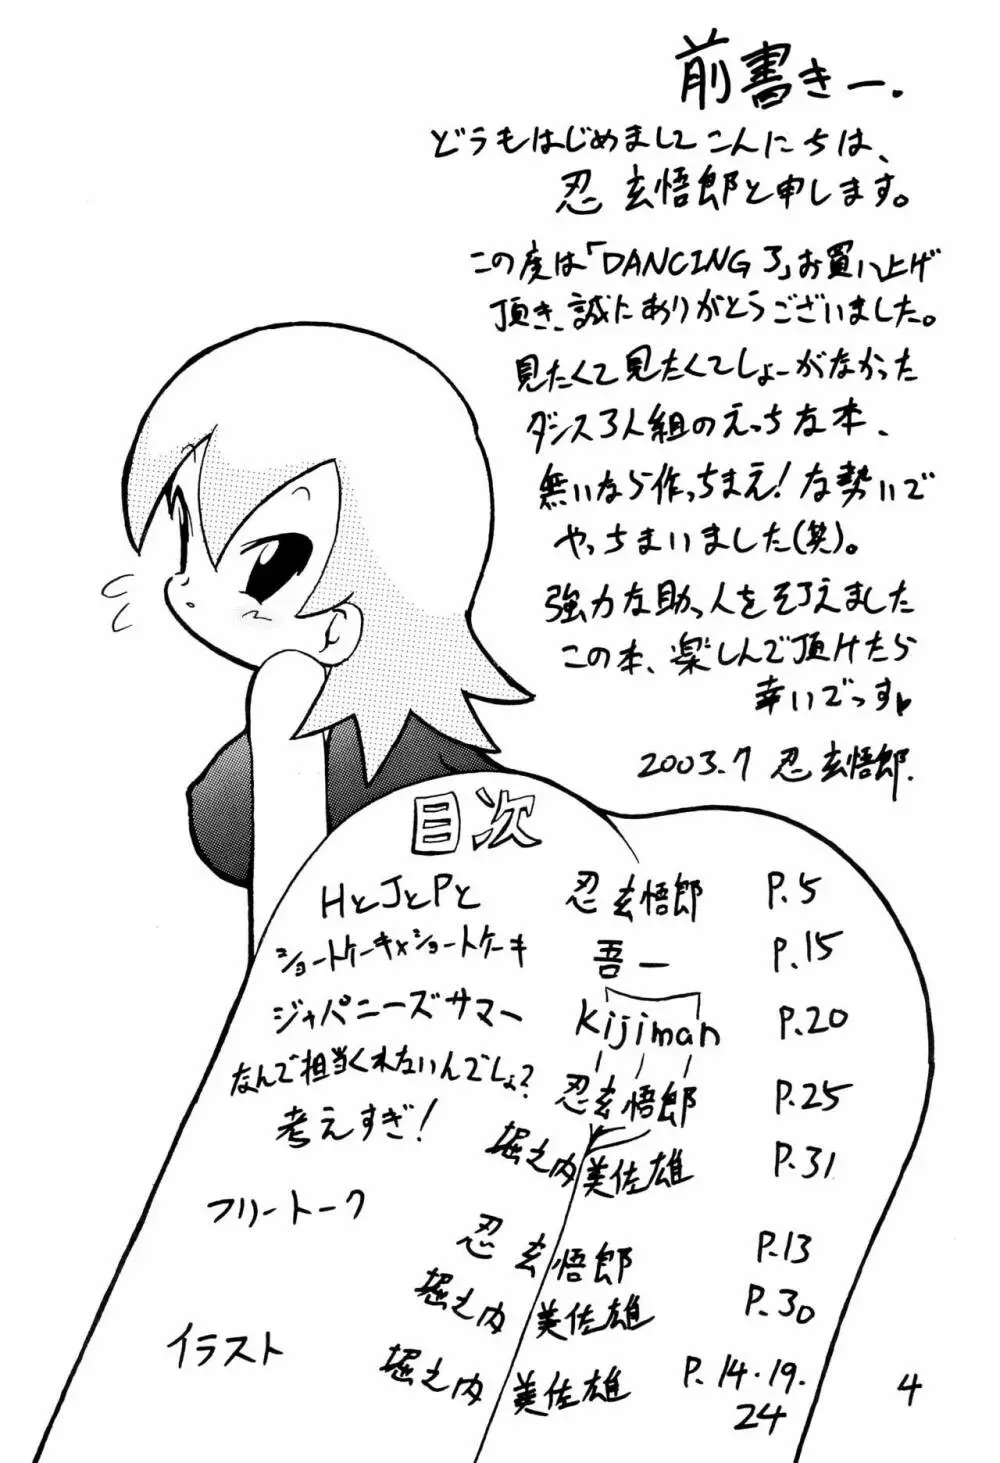 前書きー.
どうもはじめましてこんにちは、
忍 玄悟郎と申します。
この度は「DANCING 3」お買い上げ
頂き、誠にありがとうございました。
見たくて見たくてしょーがなかった
ダンス3人組のえっちな本、
無いなら作っちまえ!な勢いで
やっちまいました(笑)。
強力な助っ人をそろえました
この本、楽しんで頂けたら
幸いでっす♥
2003.7 忍 玄悟郎.
目次
HとJとPと 忍 玄悟郎 P.5
ショートケーキ×ショートケーキ 吾一 P.15
ジャパニーズサマー Kijiman P.20
なんで担当くれないんでしょ? 忍 玄悟郎 P.25
考えすぎ! 堀之内 美佐雄 P.31
フリートーク 忍 玄悟郎 P.13
堀之内 美佐雄 P.30
イラスト 堀之内 美佐雄 P.14.19.
24
4